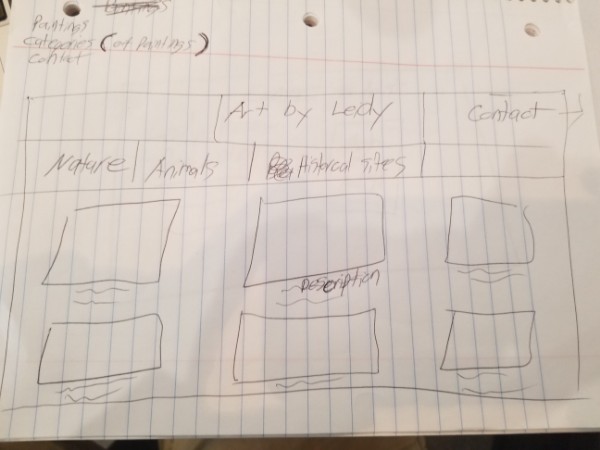 Paintings
Categories (of Paintings)
Contact
Art by Ledy Contact
Nature Animals Historcal Sites
Description